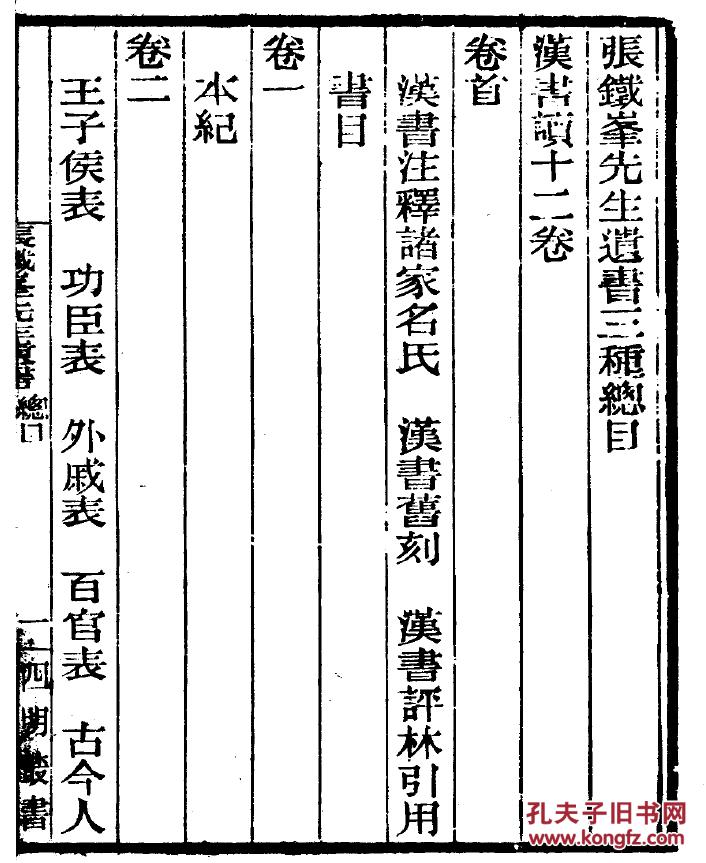 張鐵峯先生遺書三種總目
漢書讀十二卷
卷首
漢書注釋諸家名氏　漢書舊刻　漢書評林引用
書目
卷一
本紀
卷二
王子侯表　功臣表　外戚表　百官表　古今人
總目
一
四明叢書
孔夫子旧书网
www.kongfz.com